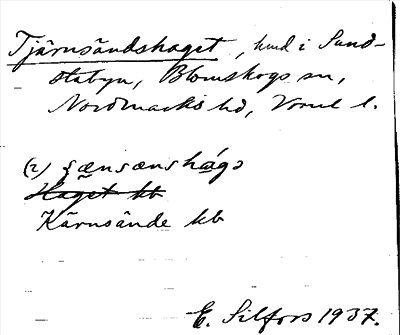 Tjärnsändshaget, hmd i Sund-
stabyn, Blomskogs sn,
Nordmarks hd, Vrml l.
(2)
Haget kb
Kärnsände kb
E. Silfors 1937.